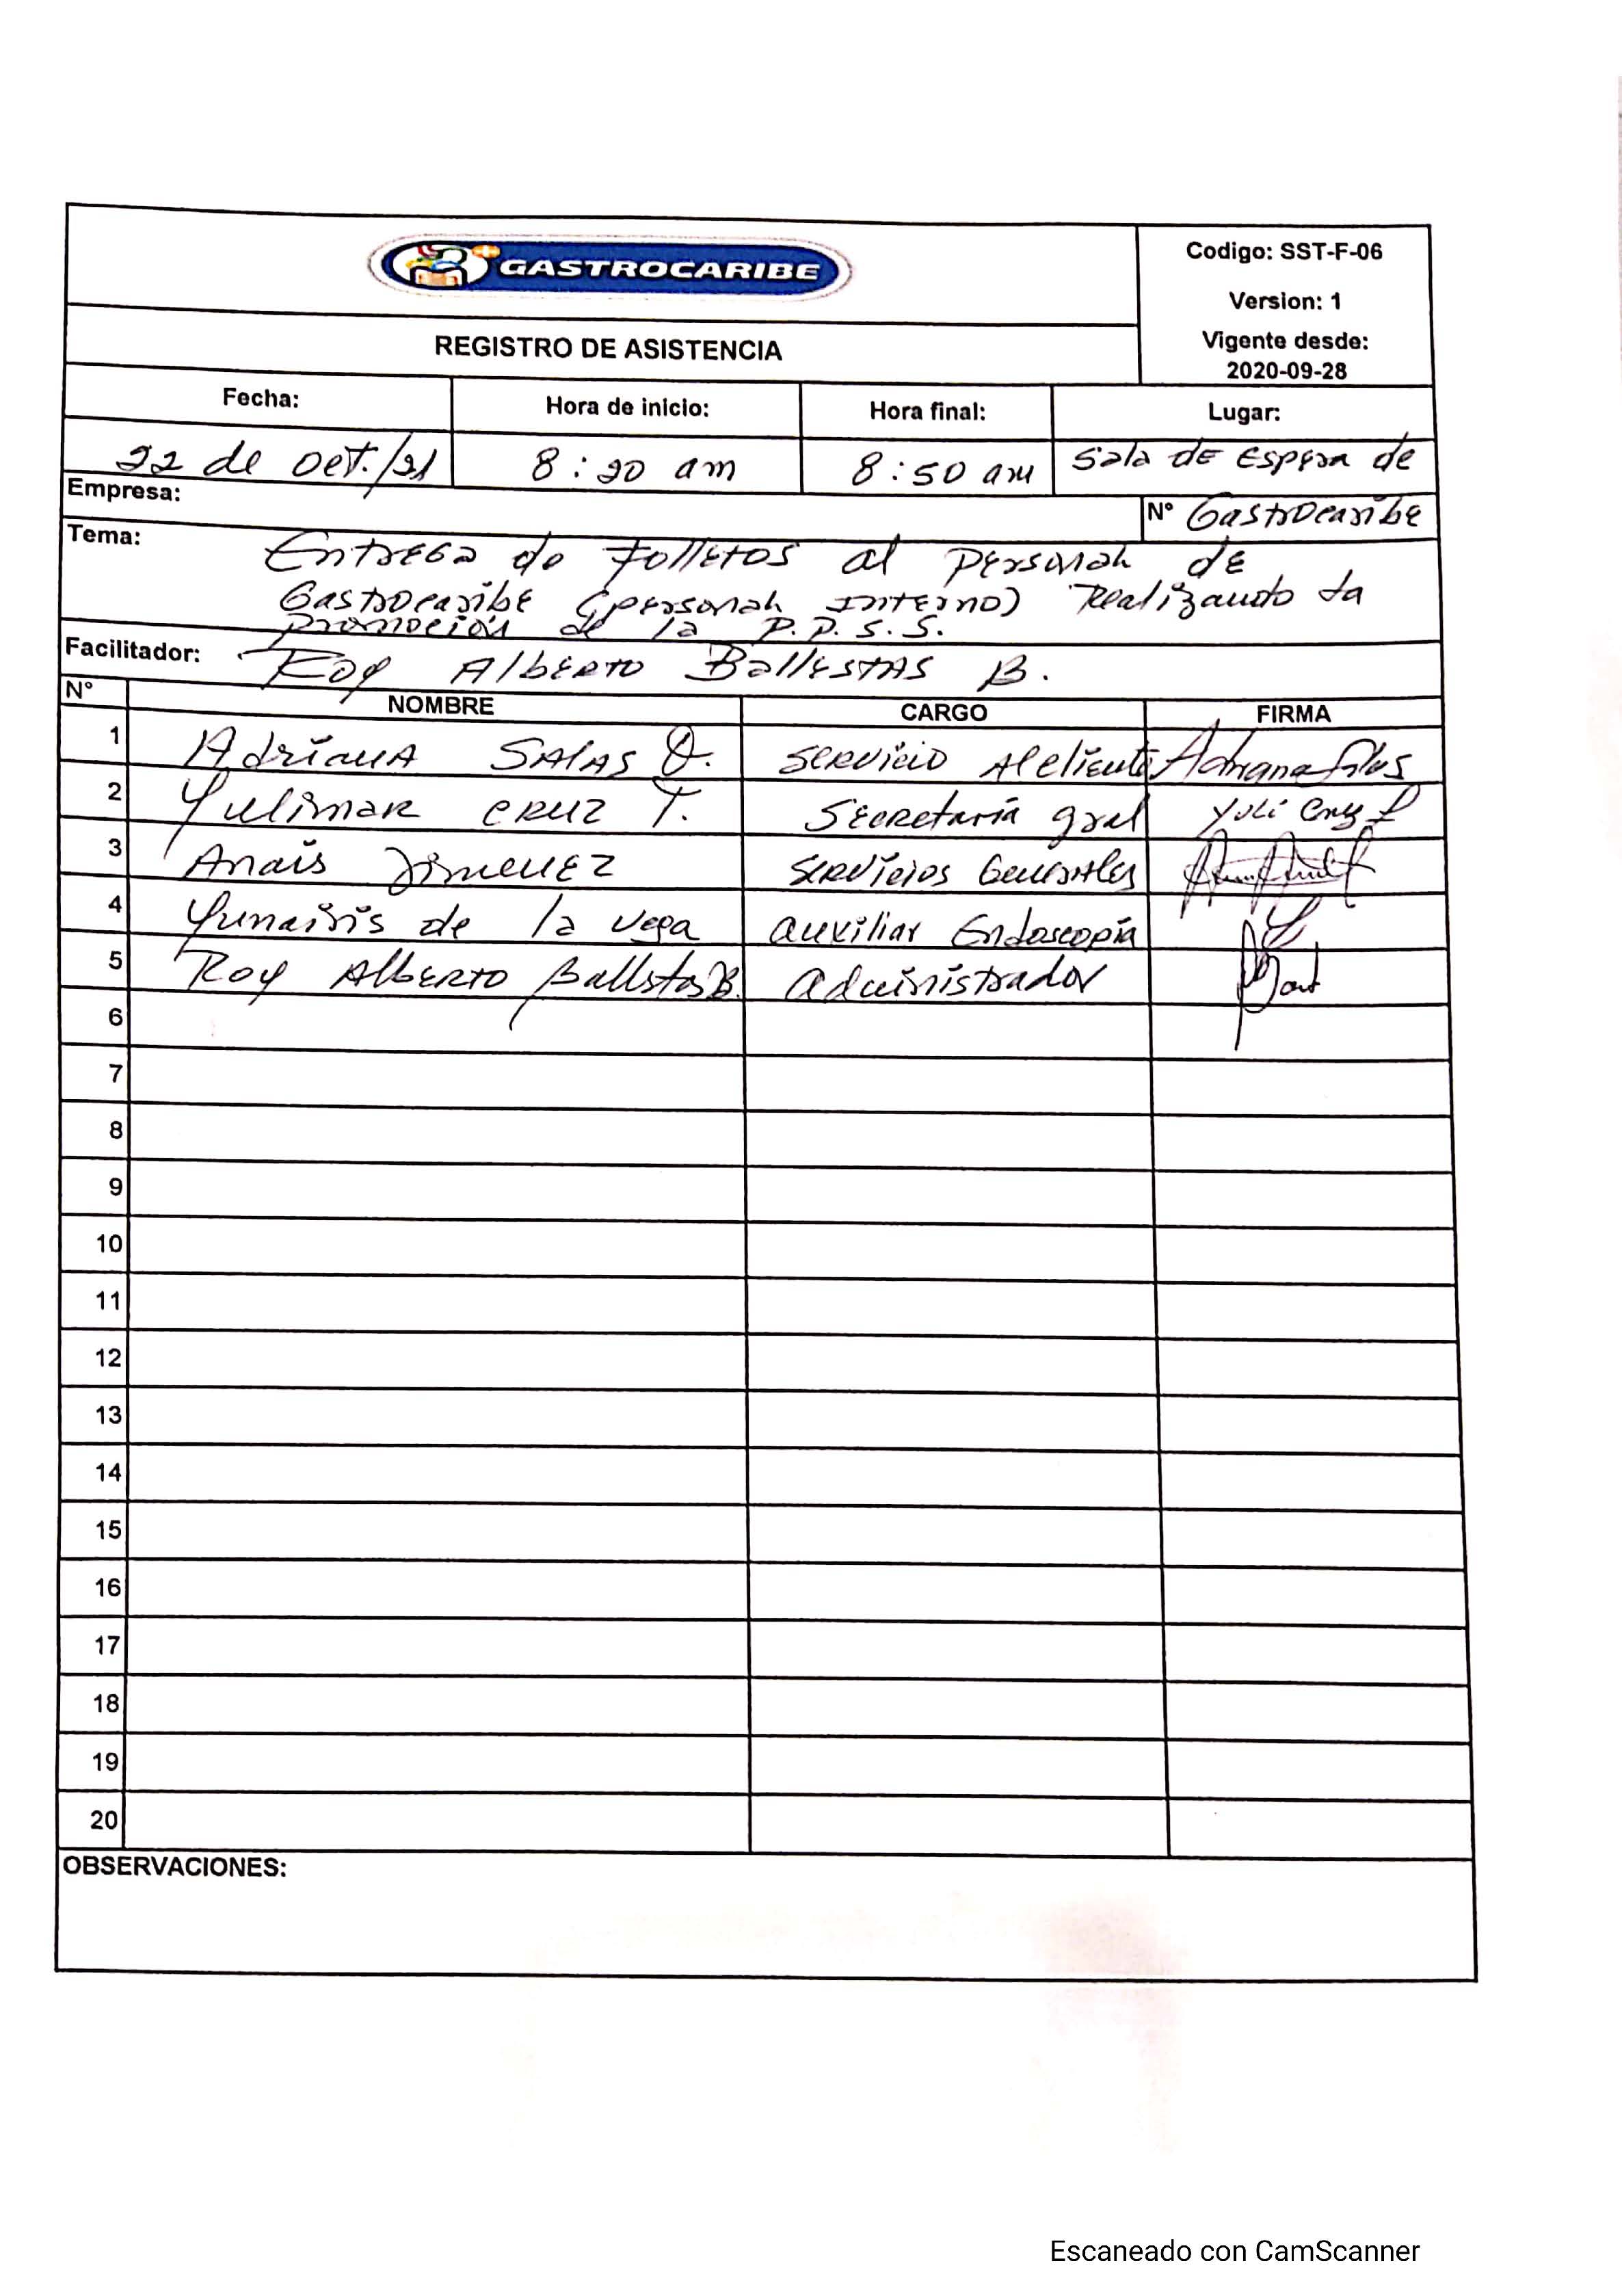 GASTROCARIBE
Codigo: SST-F-06
Version: 1
Vigente desde:
2020-09-28
REGISTRO DE ASISTENCIA
Fecha: Hora de inicio: Hora final: Lugar:
22 de oct./21 8:20 am 8:50 am Sala de Espera de
Empresa: N° Gastrocaribe
Tema: Entrega de folletos al personal de
Gastrocaribe (personal interno) Realizando la
promoción de la P.P.S.S.
Facilitador: Roy Alberto Ballestas B.
N° NOMBRE CARGO FIRMA
1 Adriana Salas O. Servicio al cliente Adriana Salas
2 Yulimar Cruz T. Secretaría gral Yuli Cruz
3 Anais Jimenez Servicios Generales
4 Yunairis de la Vega auxiliar Endoscopía
5 Roy Alberto Ballestas B. administrador
6
7
8
9
10
11
12
13
14
15
16
17
18
19
20
OBSERVACIONES:
Escaneado con CamScanner